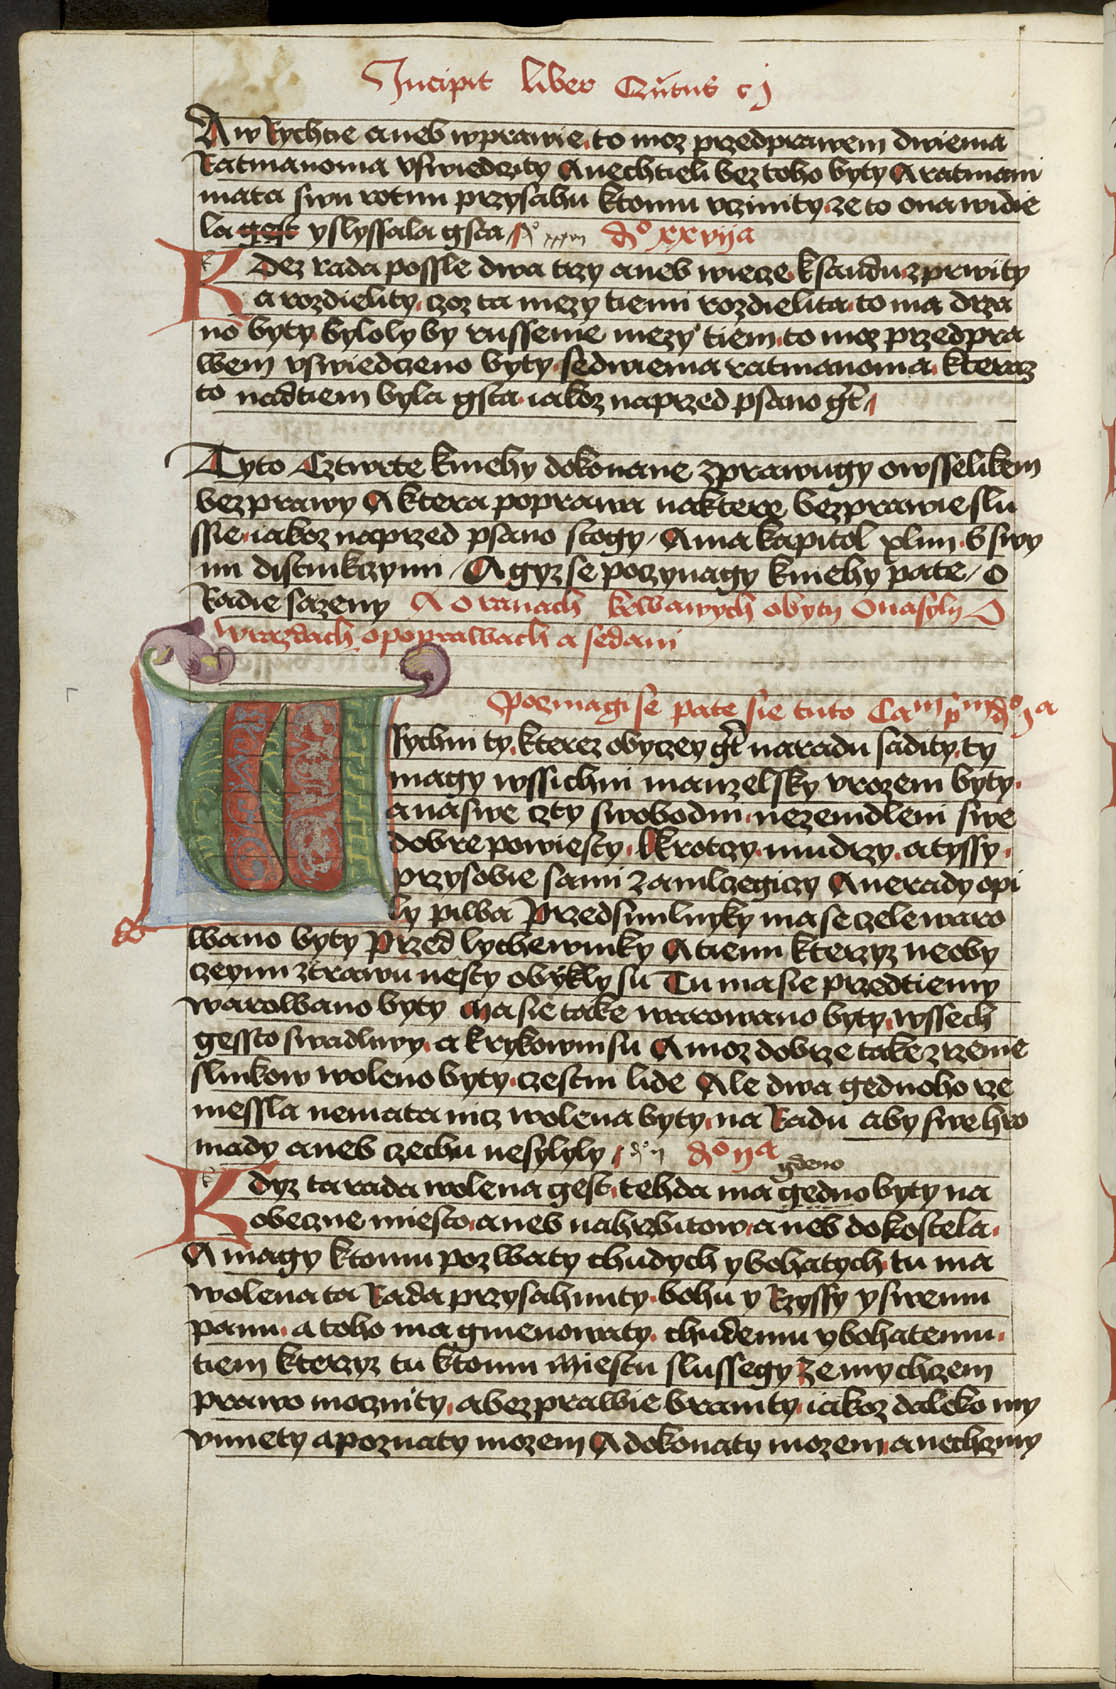 Incipit liber Qu̅ntus c j
A w Rychtie aneb wprawie, to moz przedprawem dwiema
Ratmanoma vswiedczity A nechtieli bez toho byty A ratmani
mata swu rotun przysahu ktomu vczinity, ze to ona widie
la gest y slyssala gsta d͏ͦ xxvija
Kdez rada possle dwa trzy aneb wiecze ksandu zprwity
a rozdielity, czoz ta mezy tiemi rozdielita, to ma drza
no byty, byloly by russenie mezy tiem, to moz przedpra
wem vswiedczeno byty, sedwiema ratmanoma, kteraz
to nadtiem byla gsta, iakoz naprzed psano gt̅
Tyto Cztwrte kniehy dokonane zprawugy owsselikem
bezprawy A ktera poprawa naktere bezprawie slu
ssie, iakoz naprzed psano stogy, A ma kapitol xlm, b swy
mi distinkczymi, A gyz se poczynagy kniehy pate, O
Radie sazeny A o ranach krwawych obyty O nasyly O
wrazdach, opoprawach a sedani
Poczinagi se pate sie tuto Cam pm do ja
Rychni ty, kterez obyczey gt̅ naradu sadity, ty
magy wssichni manzelsky vrozeni byty,
a naswe czty swobodni, nezemdleni swe
dobre powiesty, Krotczy, mudrzy, atyssy,
przysobie sami zamlczegiczy A nerady opi
ly piwa Przed smilnyky ma se czele waro
wano byty Przed lychewniky A tiemi kterzyz neoby
czeymi ztrawu nesty obykly su Tu ma sie przedtiemy
warowano byty Ma sie take warowano byty, wssech
gessto swadliwy, a krykowni su A moz dobrze take zrzeme
slnikow woleno byty, czestni lide Ale dwa gednoho rze
messla nemata nicz wolena byty, na Radu aby swe hro
mady aneb czechu nesylyly d͏ͦ ij d͏ͦ ija
gdeno
Kdyz ta rada wolena gest, tehda ma gedno byty na
obeczne miesto, aneb nahrzbitow, aneb do kostela,
A magy ktomu pozwaty chudych y bohatych, tu ma
wolena ta Rada przysahnuty, bohu y Rzyssy y swemu
panu, a toho ma gmenowaty, chudemu y bohatemu,
tiem kterzyz tu ktomu miestu slussegy ze my chczem
prawo mocznity, abezprawie branity, iakoz daleko my
vmiety apoznaty mozem A dokonaty mozem, a nechczmy